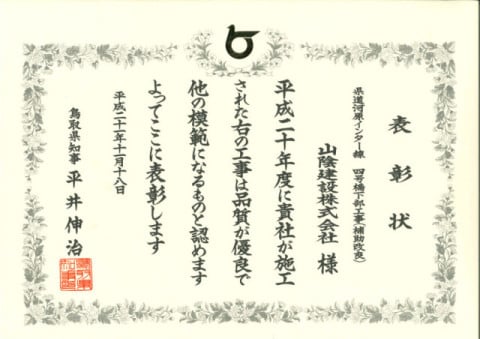 表彰状
県道河原インター線 四号橋下部工事(補助改良)
山陰建設株式会社 様
平成二十年度に貴社が施工
された右の工事は品質が優良で
他の模範になるものと認めます
よってここに表彰します
平成二十一年十一月十八日
鳥取県知事 平井伸治